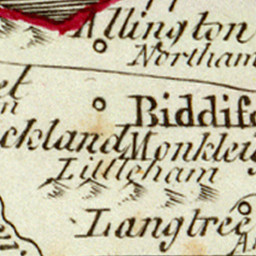 Allington
Northam
Biddif
ckland Monklei
Littleham
Langtree